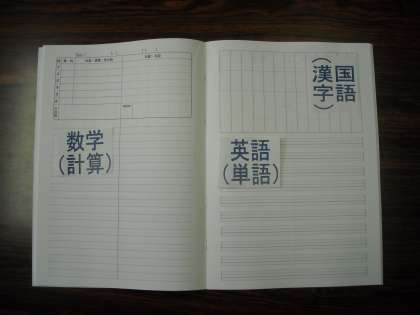 国語
(漢字)
数学
(計算)
英語
(単語)